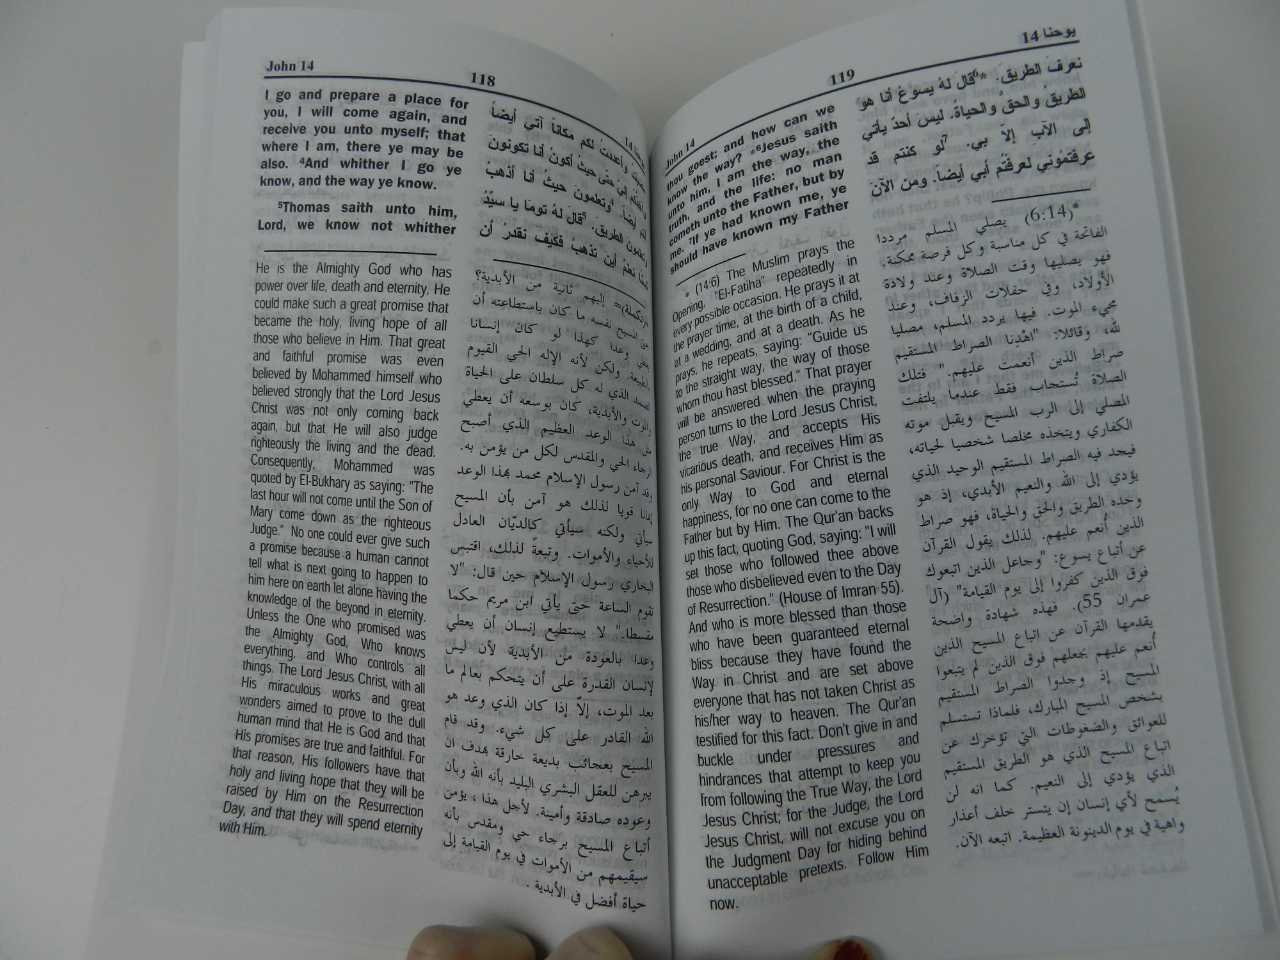 John 14
118
I go and prepare a place for
you, I will come again, and
receive you unto myself; that
where I am, there ye may be
also. ⁴And whither I go ye
know, and the way ye know.
⁵Thomas saith unto him,
Lord, we know not whither
He is the Almighty God who has
power over life, death and eternity. He
could make such a great promise that
became the holy, living hope of all
those who believe in Him. That great
and faithful promise was even
believed by Mohammed himself who
believed strongly that the Lord Jesus
Christ was not only coming back
again, but that He will also judge
righteously the living and the dead.
Consequently, Mohammed was
quoted by El-Bukhary as saying: "The
last hour will not come until the Son of
Mary come down as the righteous
Judge." No one could ever give such
a promise because a human cannot
tell what is next going to happen to
him here on earth let alone having the
knowledge of the beyond in eternity.
Unless the One who promised was
the Almighty God, Who knows
everything, and Who controls all
things. The Lord Jesus Christ, with all
His miraculous works and great
wonders aimed to prove to the dull
human mind that He is God and that
His promises are true and faithful. For
that reason, His followers have that
holy and living hope that they will be
raised by Him on the Resurrection
Day, and that they will spend eternity
with Him.
وأعددت لكم مكاناً آتي أيضاً
حتى حيثُ أكونُ أنا تكونون
أيضاً. ⁴وتعلمون حيثُ أنا أذهبُ
الطريق. ⁵قال له توما يا سيِّدُ
نعلمُ أين تذهبُ فكيف نقدرُ أن
إليهم ثانية من الأبدية؟
المسيح نفسه ما كان باستطاعته أن
وعدا كهذا لو كان إنسانا
ولكن لأنه الإله الحي القيوم
الذي له كل سلطان على الحياة
والموت والأبدية، كان بوسعه أن يعطي
هذا الوعد العظيم الذي أصبح
الحي والمقدس لكل من يؤمن به.
وقد آمن رسول الإسلام محمد بهذا الوعد
إيمانا قويا لذلك هو آمن بأن المسيح
سيأتي ولكنه سيأتي كالديّان العادل
للأحياء والأموات. وتبعةً لذلك، اقتبس
البخاري رسول الإسلام حين قال: "لا
تقوم الساعة حتى يأتي ابن مريم حكما
مقسطا." لا يستطيع إنسان أن يعطي
وعدا بالعودة من الأبدية لأن ليس
لإنسان القدرة على أن يتحكم بعالم ما
بعد الموت، إلاّ إذا كان الذي وعد هو
الله القادر على كل شيء. وقد قام
المسيح بعجائب بديعة خارقة بهدف ان
يبرهن للعقل البشري البليد بأنه الله وبأن
وعوده صادقة وأمينة. لأجل هذا ، يؤمن
أتباع المسيح برجاء حي ومقدس بأنه
سيقيمهم من الأموات في يوم القيامة إلى
حياة أفضل في الأبدية .
John 14
119
يوحنا 14
thou goest; and how can we
know the way? *⁶Jesus saith
unto him, I am the way, the
truth, and the life: no man
cometh unto the Father, but by
me. ⁷If ye had known me, ye
should have known my Father
* (14:6) The Muslim prays the
Opening, "El-Fatiha" repeatedly in
every possible occasion. He prays it at
the prayer time, at the birth of a child,
at a wedding, and at a death. As he
prays, he repeats, saying: "Guide us
to the straight way, the way of those
whom thou hast blessed." That prayer
will be answered when the praying
person turns to the Lord Jesus Christ,
the true Way, and accepts His
vicarious death, and receives Him as
his personal Saviour. For Christ is the
only Way to God and eternal
happiness, for no one can come to the
Father but by Him. The Qur'an backs
up this fact, quoting God, saying: "I will
set those who followed thee above
those who disbelieved even to the Day
of Resurrection." (House of Imran 55).
And who is more blessed than those
who have been guaranteed eternal
bliss because they have found the
Way in Christ and are set above
everyone that has not taken Christ as
his/her way to heaven. The Qur'an
testified for this fact. Don't give in and
buckle under pressures and
hindrances that attempt to keep you
from following the True Way, the Lord
Jesus Christ; for the Judge, the Lord
Jesus Christ, will not excuse you on
the Judgment Day for hiding behind
unacceptable pretexts. Follow Him
now.
نعرفَ الطريقَ. *⁶قال لهُ يسوعُ أنا هو
الطريقُ والحقُ والحياةُ. ليسَ أحدٌ يأتي
إلى الآبِ إلاّ بي. ⁷لو كنتم قد
عرفتمُوني لعرفتُم أبي أيضاً. ومن الآن
*(6:14) يصلي المسلم مرددا
الفاتحة في كل مناسبة وكل فرصة ممكنة.
فهو يصليها وقت الصلاة وعند ولادة
الأولاد، وفي حفلات الزفاف، وعند
مجيء الموت. فيها يردد المسلم، مصليا
لله، وقائلا: "اهْدِنا الصراط المستقيم
صراط الذين أنعمت عليهم." فتلك
الصلاة تُستجاب فقط عندما يلتفت
المصلي إلى الرب المسيح ويقبل موته
الكفاري ويتخذه مخلصا شخصيا لحياته،
فيجد فيه الصراط المستقيم الوحيد الذي
يؤدي إلى الله والنعيم الأبدي، إذ هو
وحده الطريق والحق والحياة، فهو صراط
الذين أُنعم عليهم. لذلك يقول القرآن
عن أتباع يسوع: "وجاعل الذين اتبعوك
فوق الذين كفروا إلى يوم القيامة" (آل
عمران 55). فهذه شهادة واضحة
يقدمها القرآن عن اتباع المسيح الذين
أُنعم عليهم بجعلهم فوق الذين لم يتبعوا
المسيح إذ وجدوا الصراط المستقيم
بشخص المسيح المبارك، فلماذا تستسلم
للعوائق والضغوطات التي تؤخرك عن
اتباع المسيح الذي هو الطريق المستقيم
الذي يؤدي إلى النعيم. كما انه لن
يُسمح لأي إنسان إن يتستر خلف أعذار
واهية في يوم الدينونة العظيمة. اتبعه الآن.